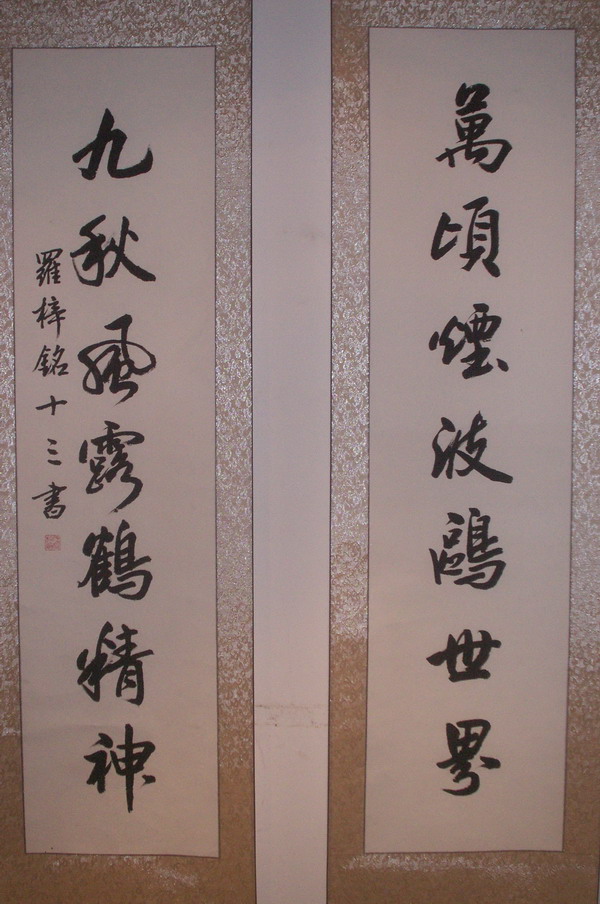 萬頃煙波鷗世界
九秋風露鶴精神
羅梓銘十三書